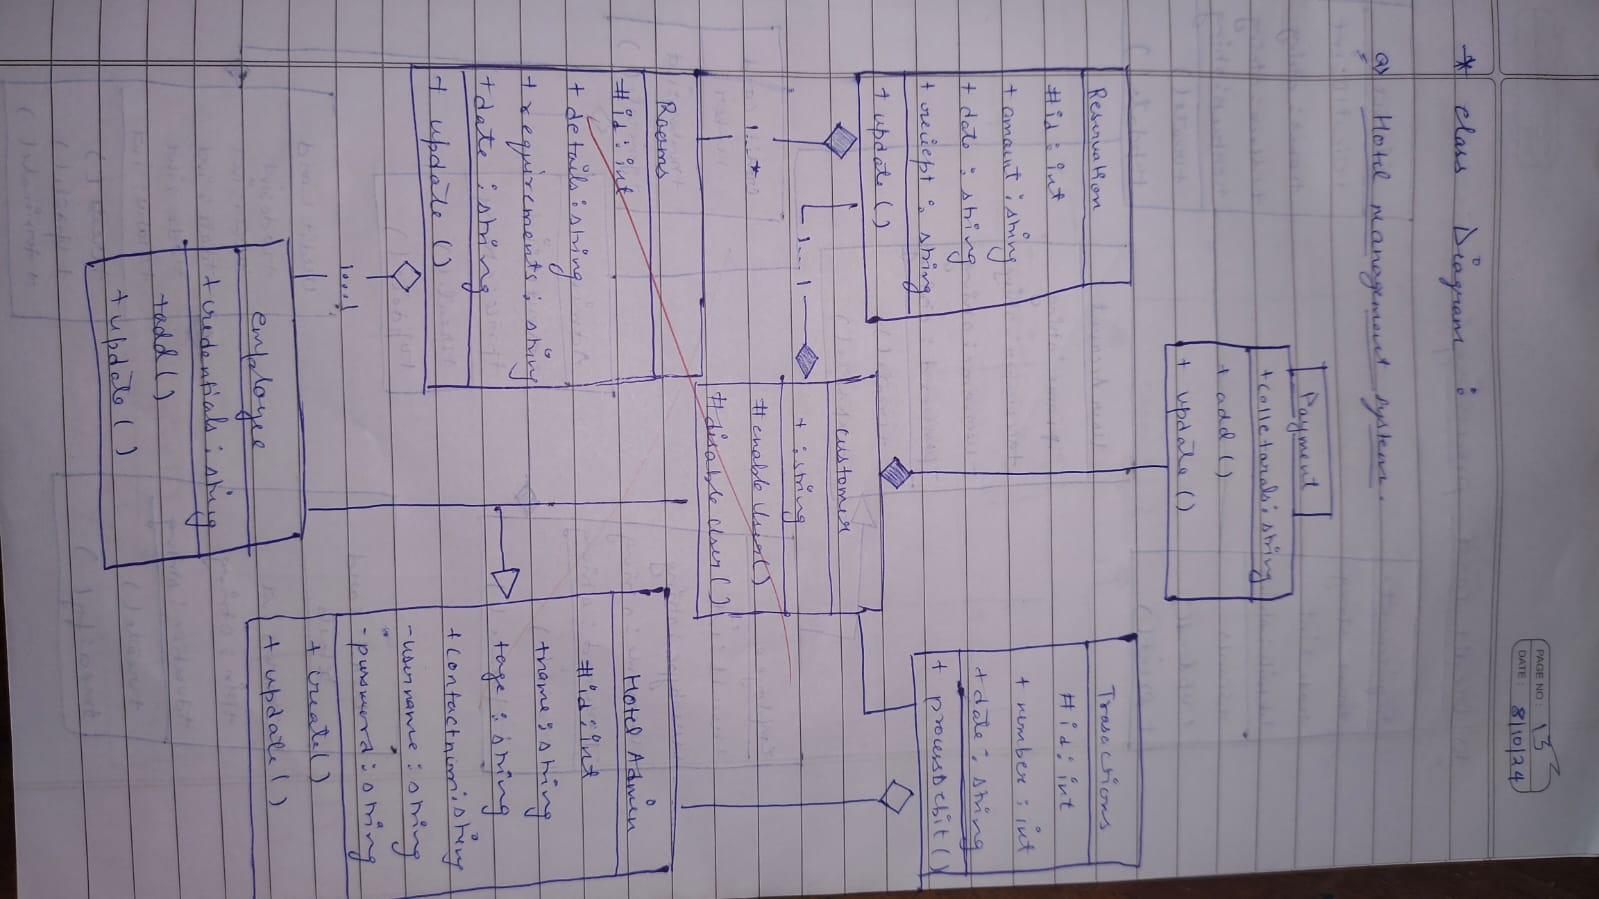 PAGE NO: 13
DATE: 8/10/24
* class Diagram :
Q) Hotel management system.
Payment
+collectarals:string
+add()
+update()
Reservation
#id:int
+amount:string
+date:string
+reciept:string
+update()
Trasactions
#id:int
+number:int
+date:string
+processDebit()
customer
+:string
#enable User()
#disable User()
1
1...*
1
1...
Rooms
#id:int
+details:string
+requirements:string
+date:string
+update()
Hotel Admin
#id:int
+name:string
+age:string
+contactnum:string
-username:string
-password:string
+create()
+update()
employee
+credentials:string
+add()
+update()